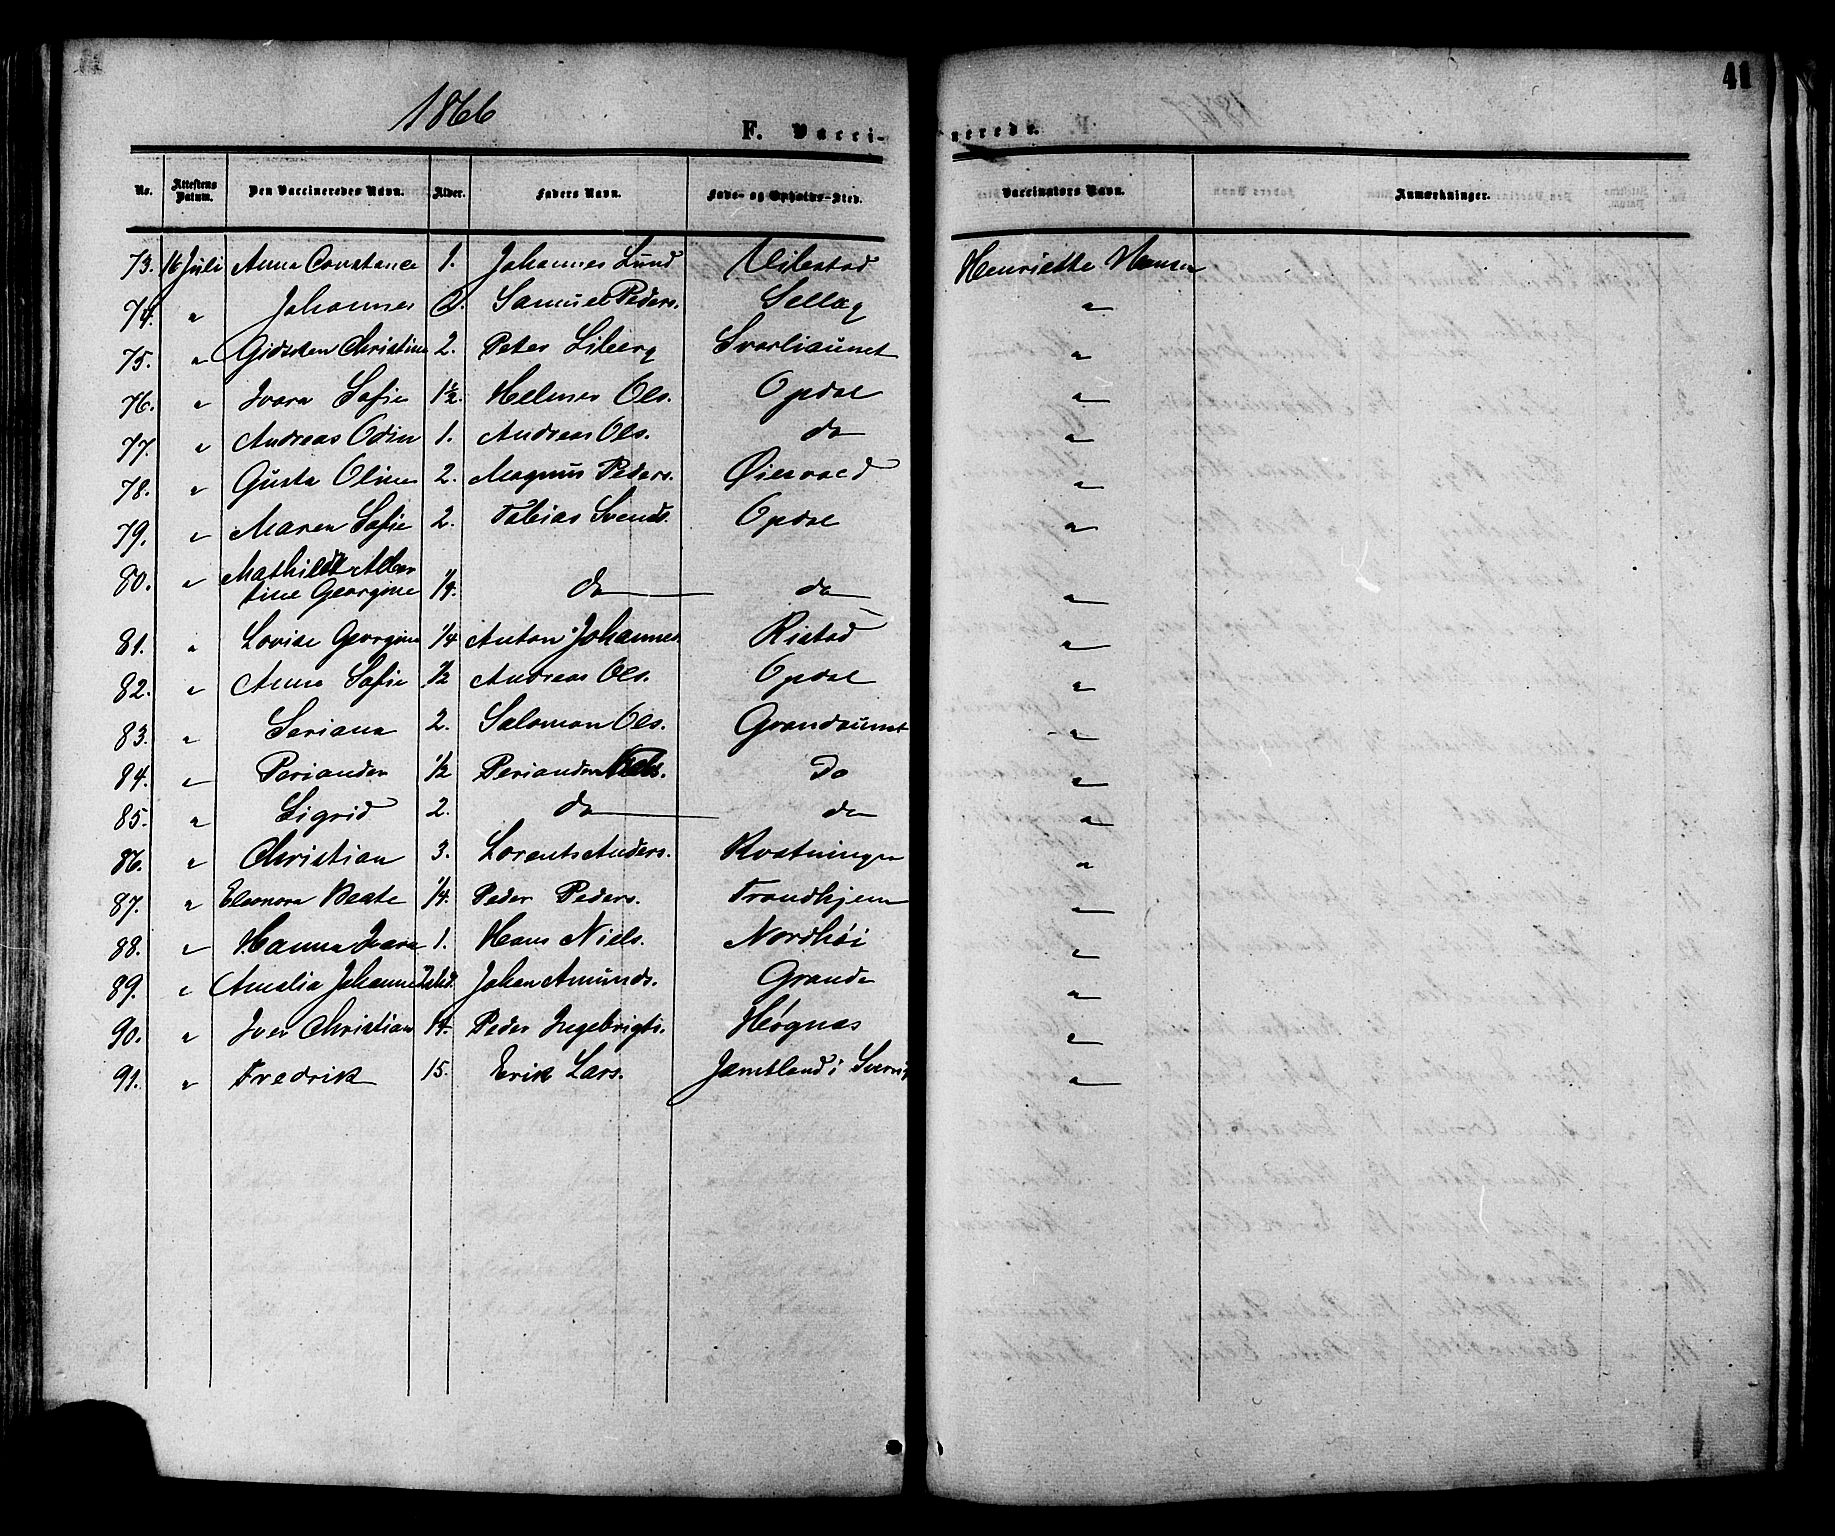 41
1866
F. Vaccinerede.
No. Attestens Datum. Den Vaccineredes Navn. Alder. Faders Navn. Føde- og Opholds-Sted. Vaccinators Navn. Anmærkninger.
73. 16 Juli Anna Constance 1. Johannes Lund Henriette Hansen
74. " Johannes 2. Samuel Peders. Sellæg "
75. " Gidsken Christine 2. Peter Liberg Svarliaunet "
76. " Ivara Sofie 1½. Helmer Ols. Opdal "
77. " Andreas Odin 1. Andreas Ols. do "
78. " Gusta Oline 2. Magnus Peders. Øiervold "
79. " Maren Sofie 2. Tobias Svends. Opdal "
80. " Mathilde Alber
tine Georgine ¼. do do "
81. " Lovise Georgine ¼ Anton Johannes. Ristad "
82. " Anna Sofie ½ Andreas Ols. Opdal "
83. " Seriana 2. Salomon Ols. Grandaunet "
84. " Periander ½ Periander Do "
85. " Sigrid 2. do do "
86. " Christian 3. Lorents Anders. Kvatningen "
87. " Eleonora Beate ¼. Peder Peders. Trondhjem "
88. " Hanna Ivara 1. Hans Niels. Nordhöi "
89. " Amalia Johanne Johan Amunds. Grande "
90. " Iver Christian Peder Ingebrigts. Høgnas "
91. " Fredrik 15. Erik Lars. Jæmtland i Sverrig "